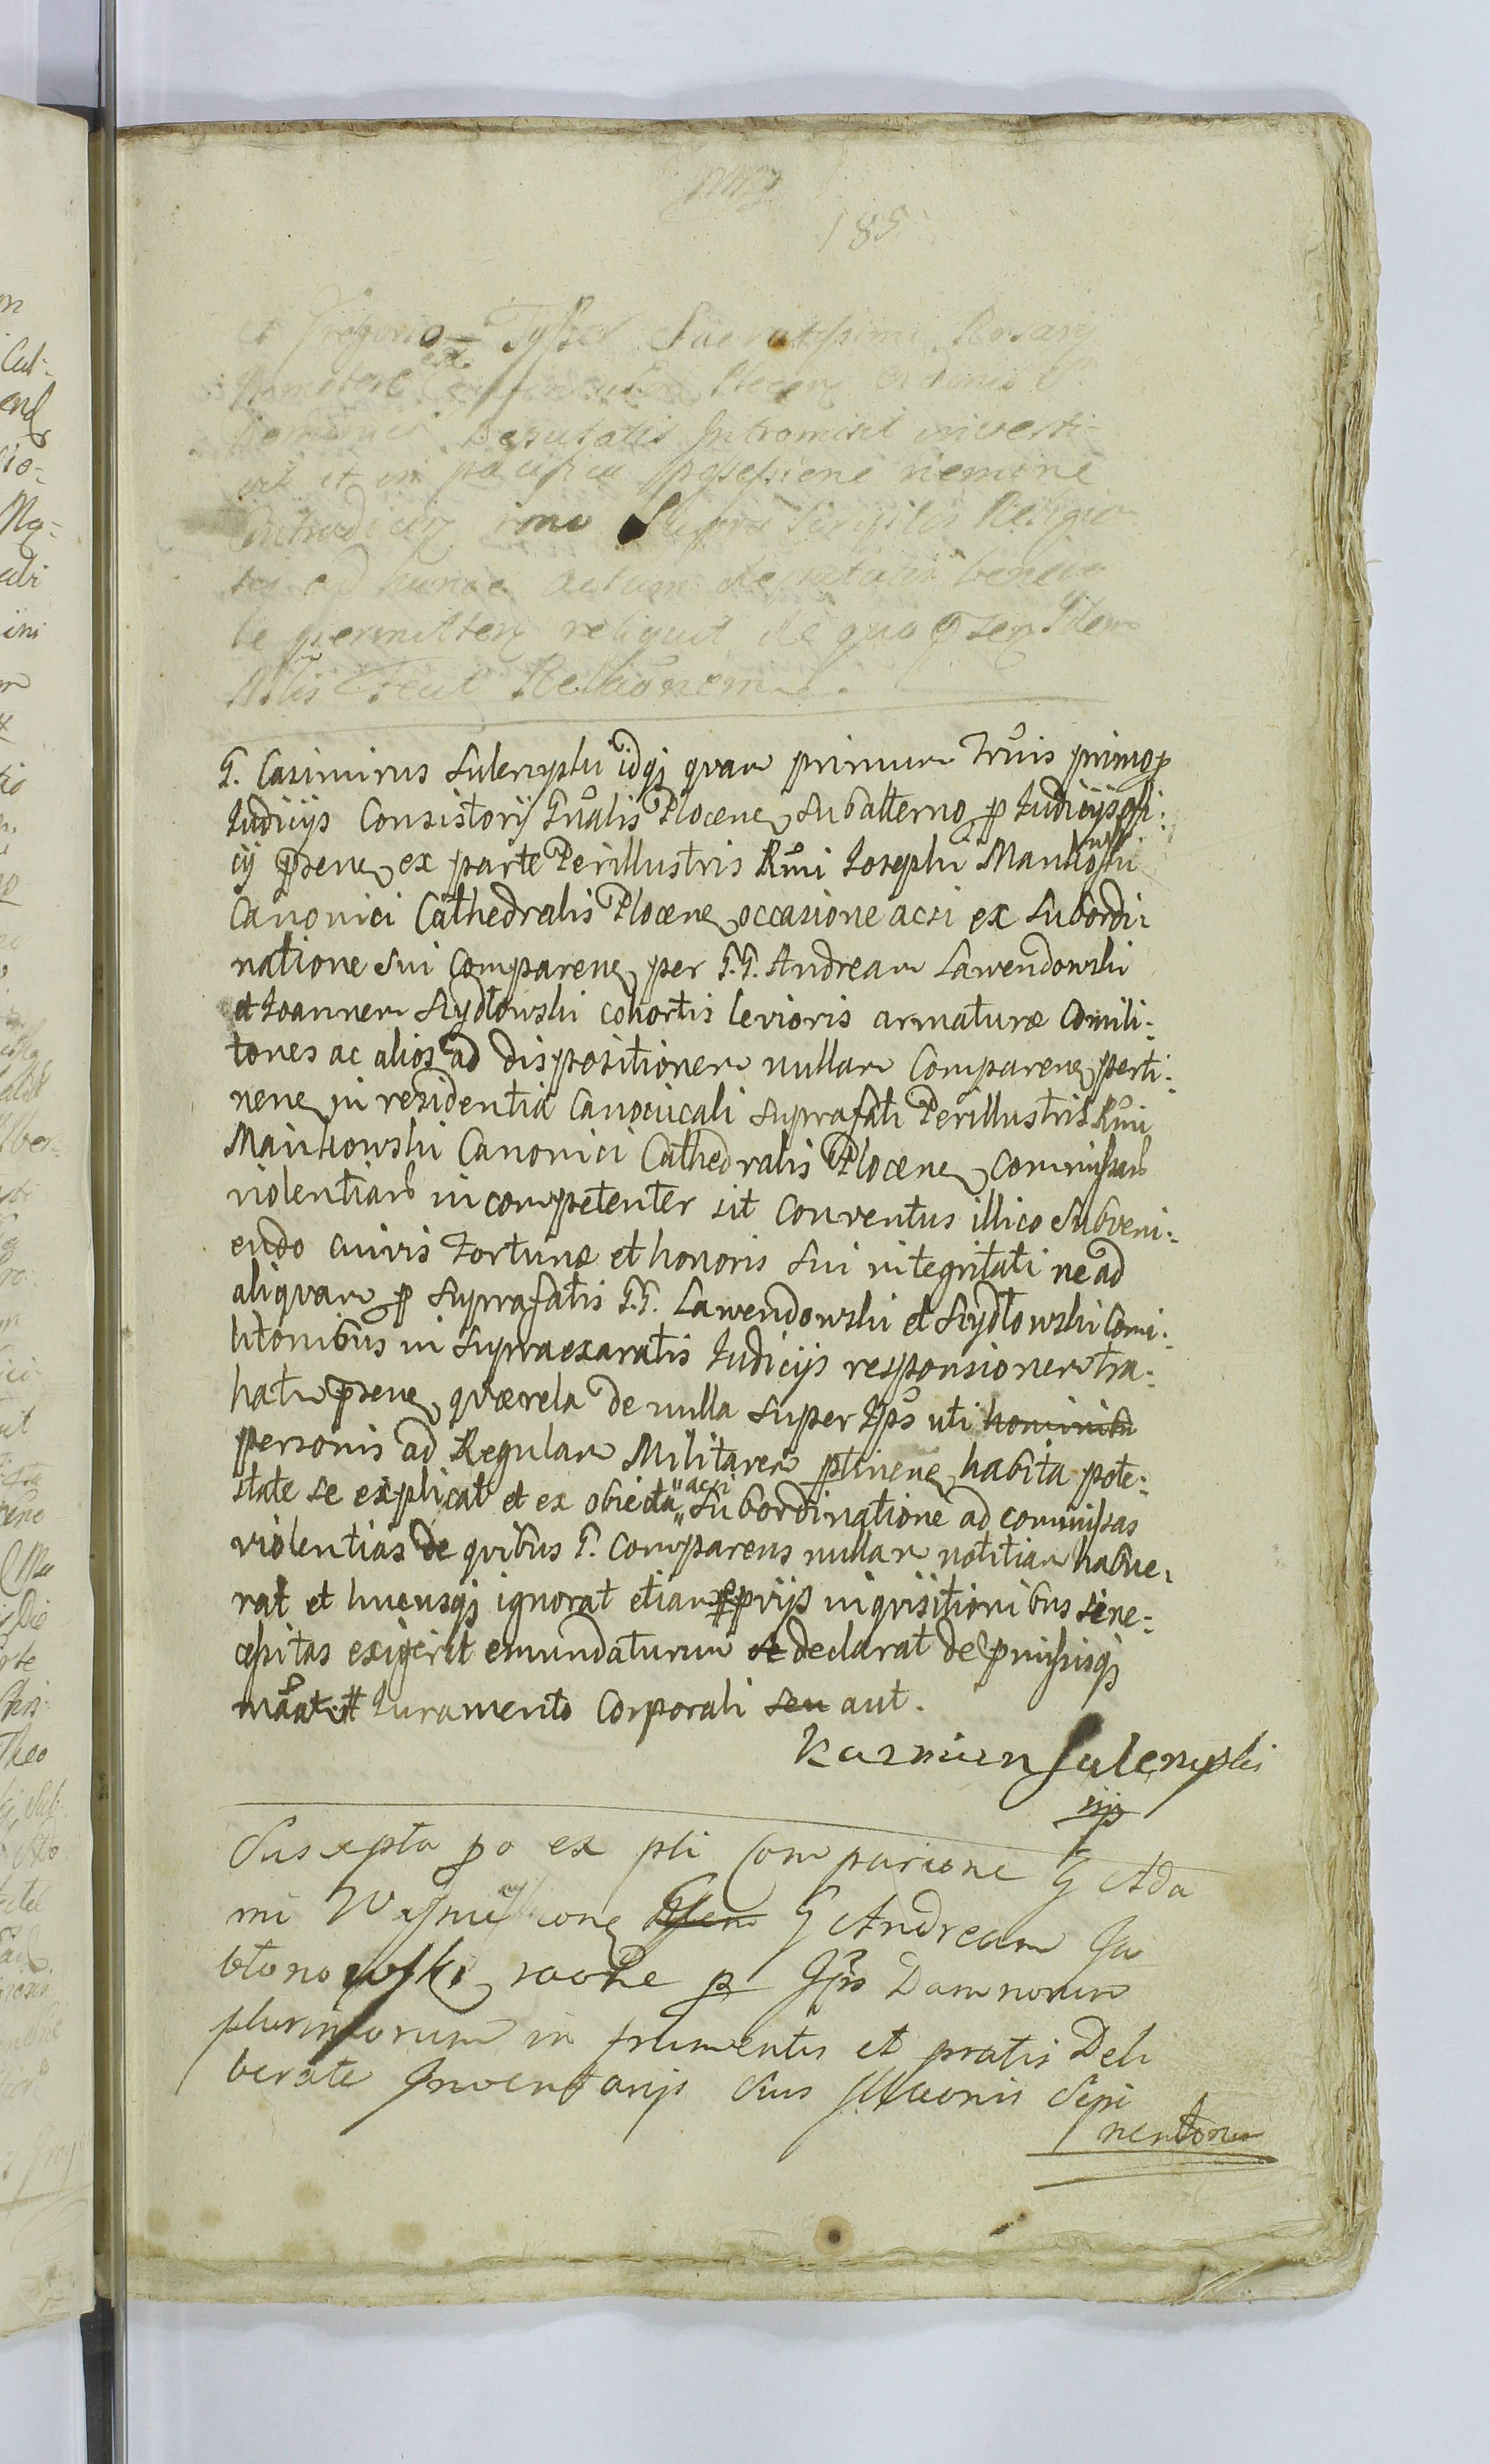 185
et Gregorio Sacratissimi Rosarij
Promotore Plocen ordinis S.
Deputatis Intromisit investi-
vit et in pacifica possessione nemine
Contradicen imo Supra Scriptis Religio
sis ad hunce actum deputatis benevo
le permitten reliquit de quo Iden
Nttis Fecit Relationem
G. Casimirus Sulerzyski idqȝ quam primum Truis primo p
Iudicijs Consistorij Gnalis Plocene Subalterno p Iudicijs offi:
cij psene ex parte Perillustris Rmi Iosephi Mankowski
Canonici Cathedralis Plocene occasione acsi ex Subordi:
natione Sui Comparene per G.G. Andream Lawendowski
et Ioannem Szydłowski cohortis levioris armaturæ Comili:
tones ac alios ad dispositionem nullam Comparene perti:
nene in residentia Canonicali suprafati Perillustris Rmi
Mankowski Canonici Cathedralis Plocene commissas
violentias incompetenter sit Conventus illico Subveni:
endo cuivis Fortunæ et honoris Sui integritati ne ad
aliquam p suprafatis G.G. Lawendowski et Szydłowski Comi:
litonibus in supraexaratis Iudicijs responsionem tra:
hatur psene quærela de nulla super Ipsos uti hominibus
personis ad Regulam Militarem ptinene habita pote:
state se explicat et ex obiecta acsi Subordinatione ad commissas
violentias de quibus G. Comparens nullam notitiam habue:
rat et hucusqȝ ignorat etiam pprijs inquisitionibus si ne:
cessitas exigerit emundaturum se declarat de pmissisqȝ
Iuramento Corporali seu aut.
Kazmierz Sulerzyski
mp
Suscepta po ex pli Comparicione G Ada
mi cone Iten G Andream Ja
błonowski raone p Ipm Damnorum
plurimorum in frumentis et pratis Deli
berate Inventarijs Suis Sepi
mentorum